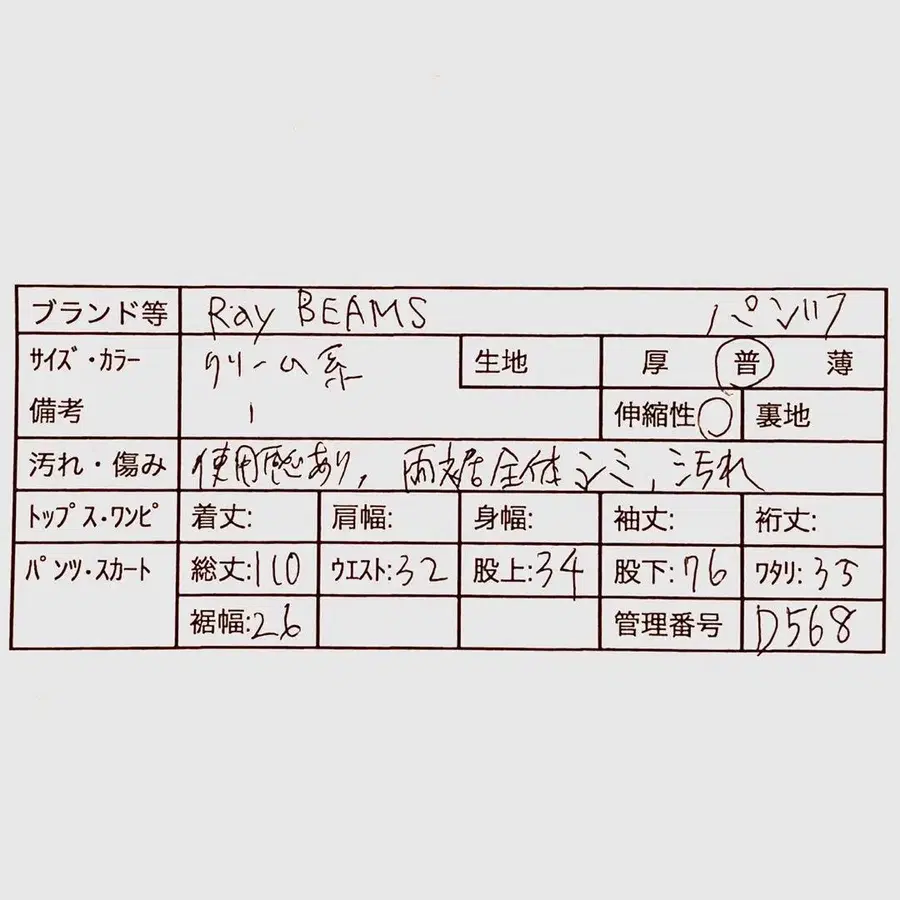 ブランド等 Ray BEAMS パンツ
サイズ・カラー クリーム系 生地 厚 普 薄
備考 1 伸縮性 ○ 裏地
汚れ・傷み 使用感あり, 両裾全体シミ, 汚れ
トップス・ワンピ 着丈: 肩幅: 身幅: 袖丈: 裄丈:
パンツ・スカート 総丈:110 ウエスト:32 股上:34 股下:76 ワタリ:35
裾幅:26 管理番号 D568